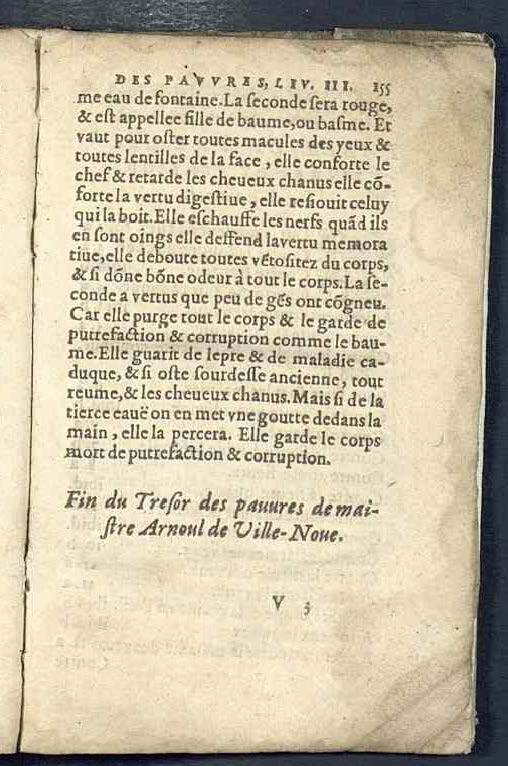 DES PAVVRES, LIV. III. 155
me eau de fontaine. La ſeconde ſera rouge,
& eſt appellee fille de baume, ou baſme. Et
vaut pour oſter toutes macules des yeux &
toutes lentilles de la face, elle conforte le
chef & retarde les cheueux chanus elle cō-
forte la vertu digeſtiue, elle reſiouit celuy
qui la boit. Elle eſchauffe les nerfs quād ils
en ſont oings elle deffend la vertu memora
tiue, elle deboute toutes vētoſitez du corps,
& ſi dōne bōne odeur à tout le corps. La ſe-
conde a vertus que peu de gēs ont cōgneu.
Car elle purge tout le corps & le garde de
putrefaction & corruption comme le bau-
me. Elle guarit de lepre & de maladie ca-
duque, & ſi oſte ſourdeſſe ancienne, tout
reume, & les cheueux chanus. Mais ſi de la
tierce eauë on en met vne goutte dedans la
main, elle la percera. Elle garde le corps
mort de putrefaction & corruption.
Fin du Treſor des pauures de mai-
ſtre Arnoul de Ville-Noue.
V 3